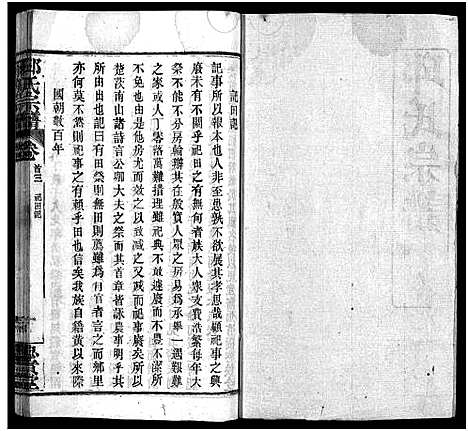 祀田記
記事所以報本也人非至愚孰不欲展其孝思哉顧祀事之興
廢未有不係於田之有無者族大人衆支費浩繁每年大
祭不能不分房輪辦其在殷實人眾之房易爲承舉一遇艱難
之家或人丁零落力有措理雖祀典不缺遂廢而不豊不潔所
不免也由是他房尤而效之以致減之又減而祀事廢矣所以
楚茨南山諸詩言公卿大夫之祭而其首章皆詠農事明乎其
所由出也記曰有田祭則無田則薦雖爲有官者言之而鄉里
亦何莫不然祀事之有賴乎田也信矣我族自籍黄以來際
國朝數百年
氏宗譜
卷
首三
祀田記
氏宗譜